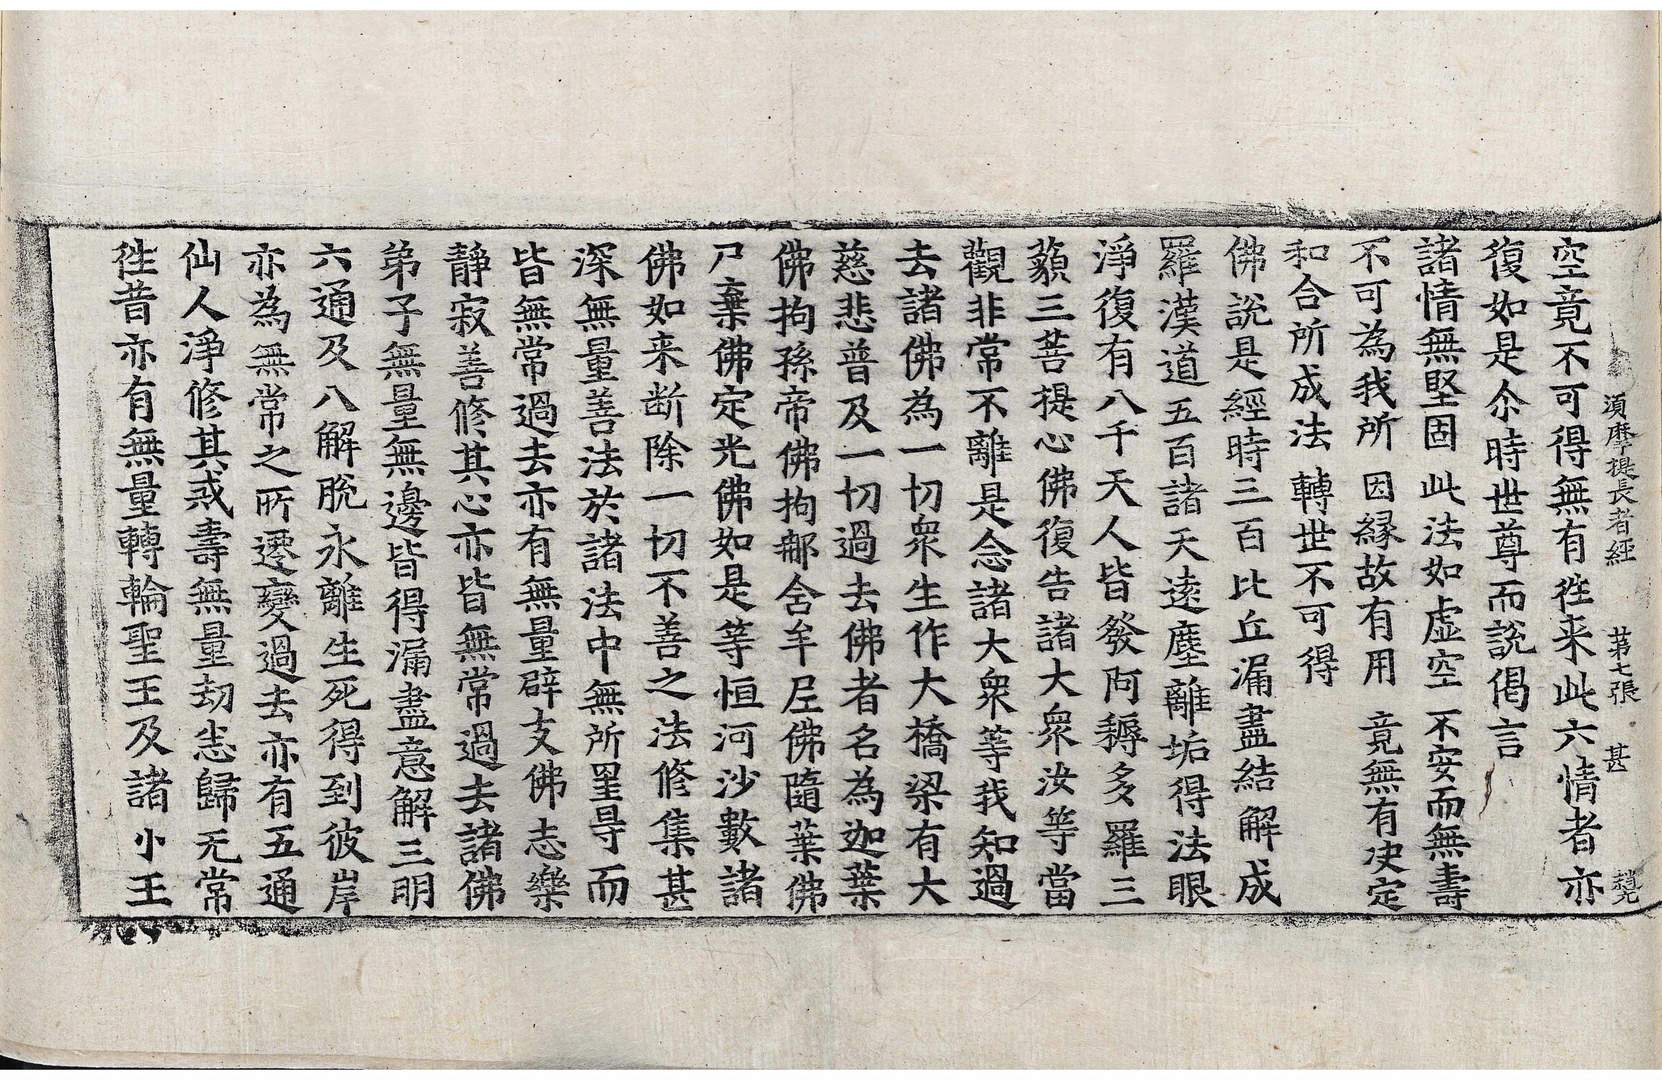 須摩提長者經 第七張 甚
空竟不可得無有徃来此六情者亦
復如是尒時世尊而說偈言
諸情無堅固 此法如虛空 不安而無壽
不可為我所 因緣故有用 竟無有决定
和合所成法 轉世不可得
佛說是經時三百比丘漏盡結解成
羅漢道五百諸天遠塵離垢得法眼
淨復有八千天人皆發阿耨多羅三
藐三菩提心佛復告諸大衆汝等當
觀非常不離是念諸大衆等我知過
去諸佛為一切衆生作大橋梁有大
慈悲普及一切過去佛者名為迦葉
佛拘孫帝佛拘那舍牟尼佛隨葉佛
尸棄佛定光佛如是等恒河沙數諸
佛如来断除一切不善之法修集甚
深無量善法於諸法中無所罣㝵而
皆無常過去亦有無量辟支佛志樂
静寂善修其心亦皆無常過去諸佛
弟子無量無邊皆得漏盡意解三明
六通及八解脫永離生死得到彼岸
亦為無常之所遷變過去亦有五通
仙人淨修其戒壽無量劫悉歸无常
徃昔亦有無量轉輪聖王及諸小王